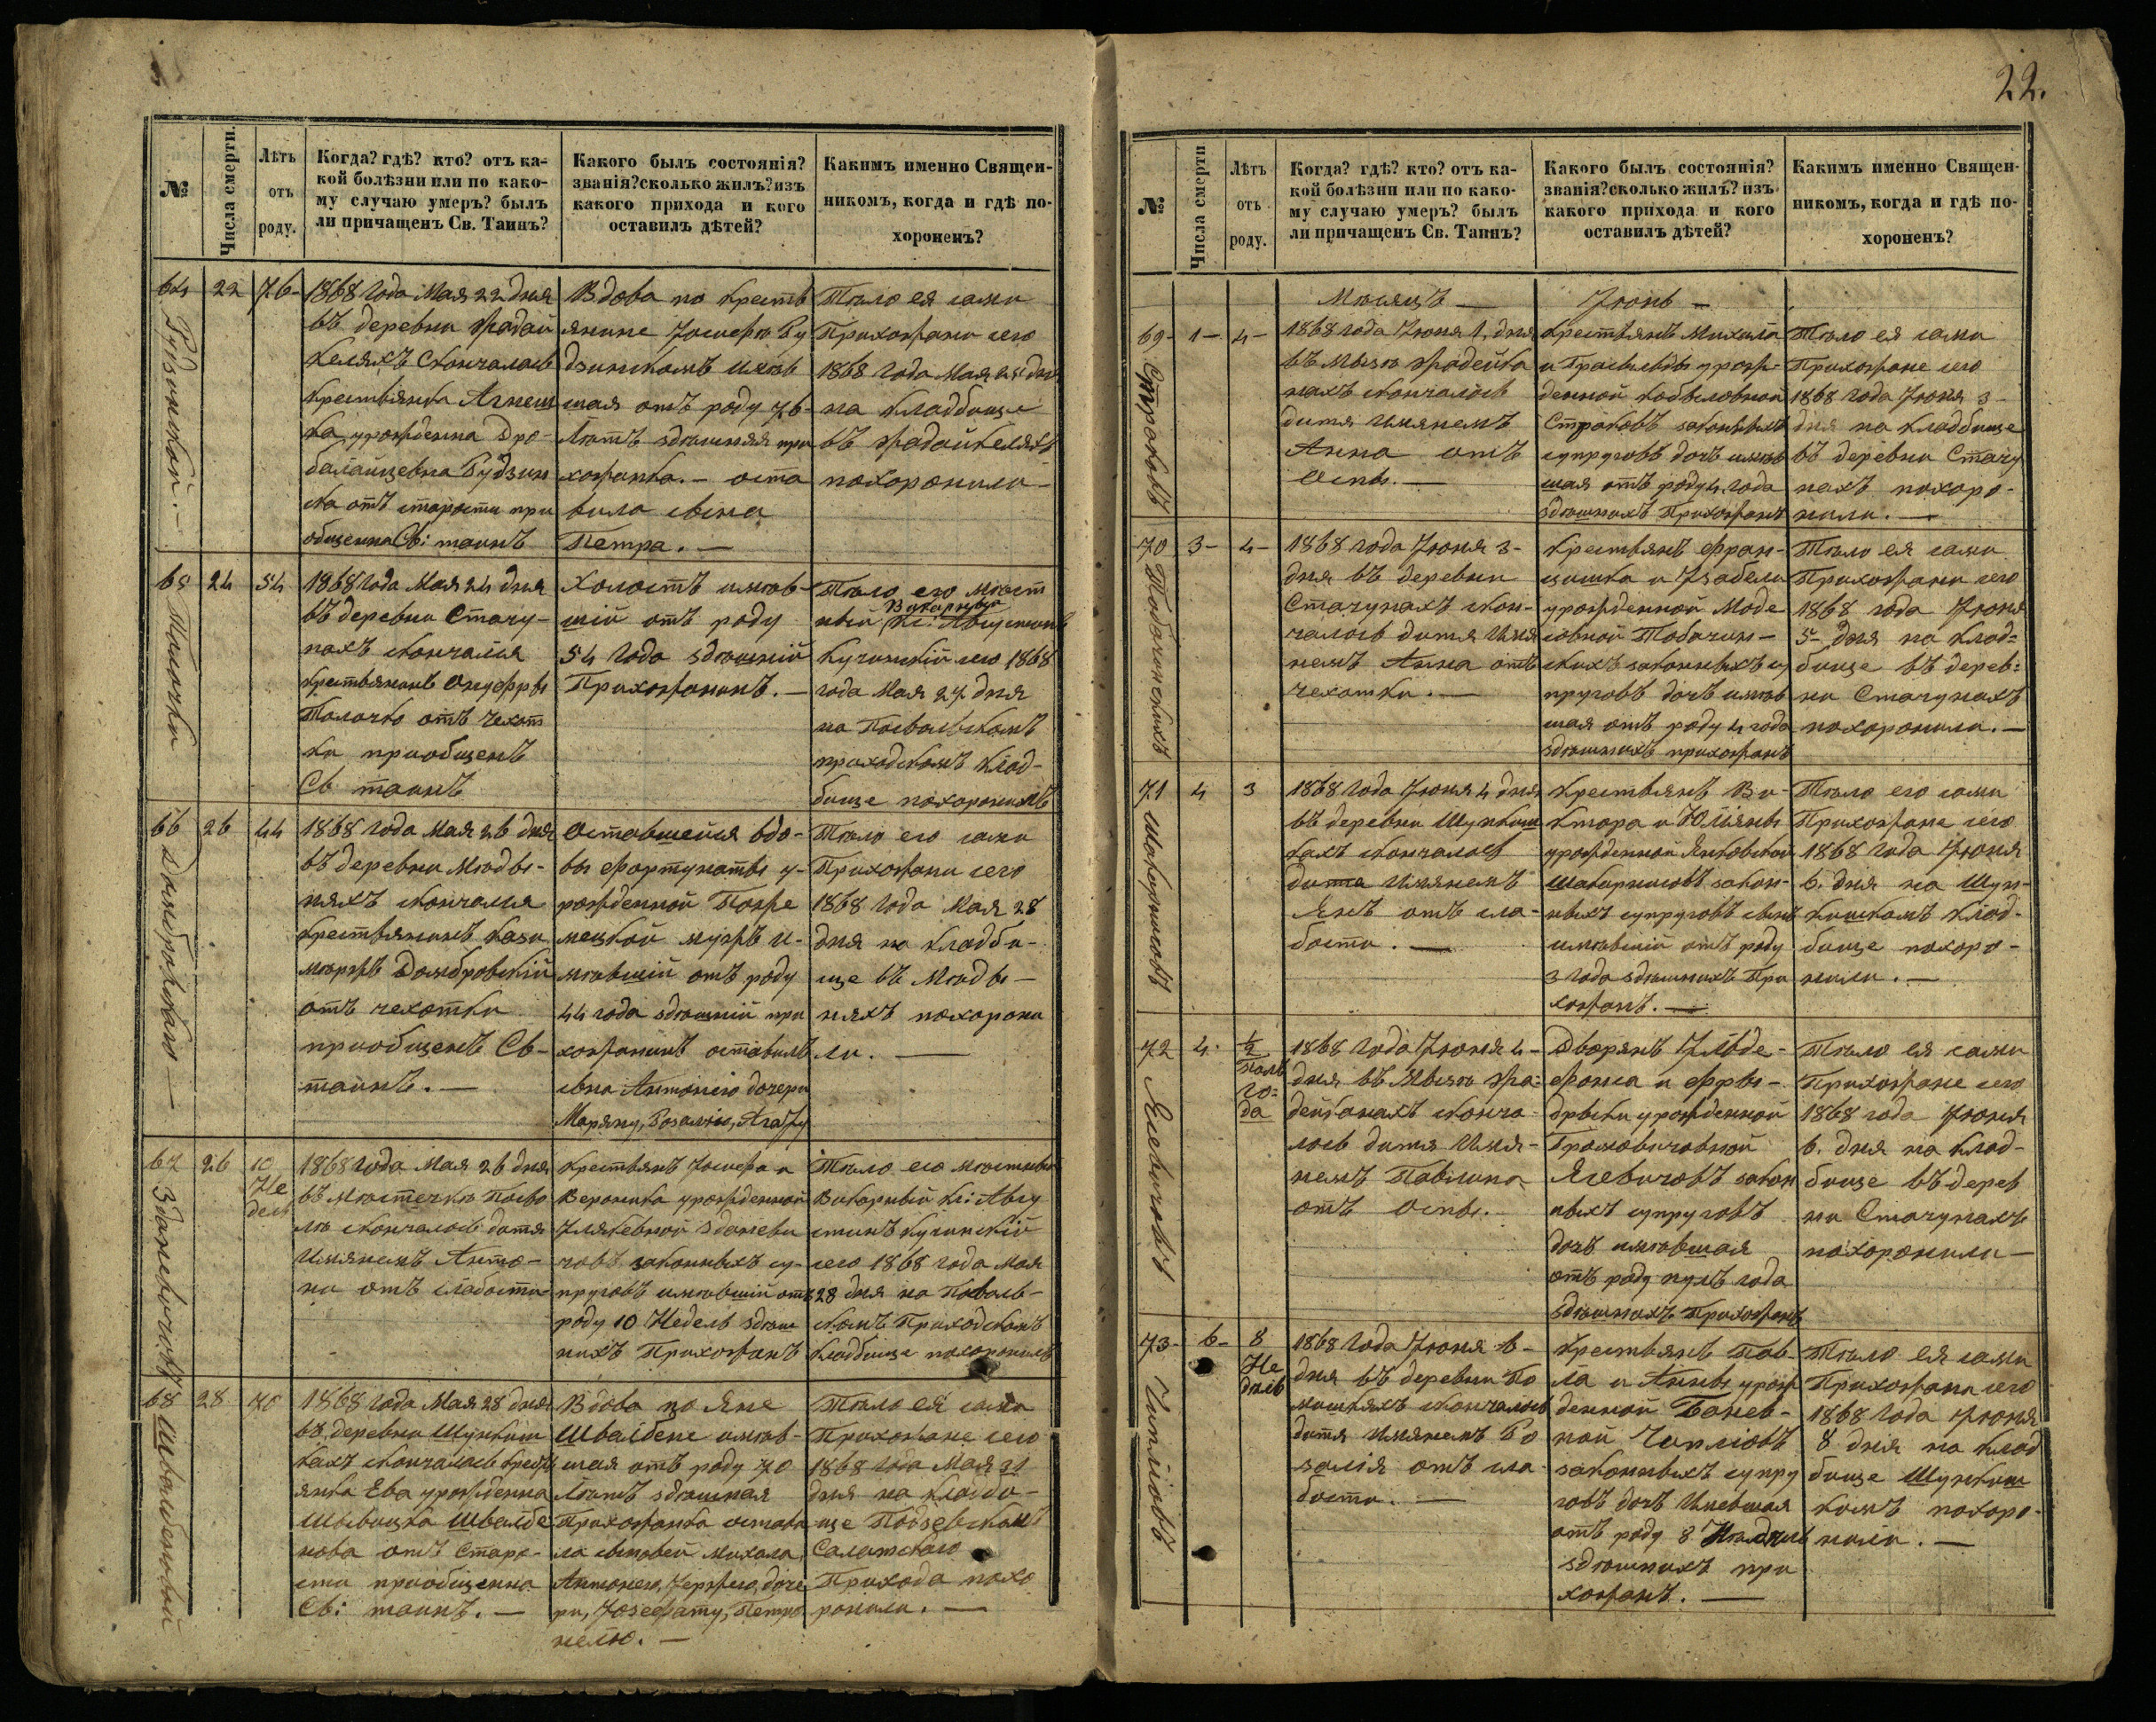 22.
№
Числа смерти.
Лѣтъ
отъ
роду.
Когда? гдѣ? кто? отъ ка-
кой болѣзни или по како-
му случаю умеръ? былъ
ли причащенъ Св. Таинъ?
Какого былъ состоянія?
званія? сколько жилъ? изъ
какого прихода и кого
оставилъ дѣтей?
Какимъ именно Священ-
никомъ, когда и гдѣ по-
хороненъ?
64
Будзинской. —
22
76-
1868 года Мая 22 дня
въ деревни Жадай
келяхъ скончалась
крестьянка Агнеш
ка урожденна Дро-
балайцевна Будзин
ска отъ старости при
общенна Св: таинъ
Вдова по кресть
янине Іосифѣ Бу
дзинскомъ имѣв
шая отъ роду 76-
лѣтъ здѣшняя при
хожанка. — оста
вила сына
Петра. —
Тѣло ея сами
Прихожани сего
1868 года Мая 24 дня
на кладбище
въ Жадайкеляхъ
похоронили —
65
Толочки
24
54
1868 года Мая 24 дня
въ деревни Стачу-
нахъ скончался
крестьянинъ Онуфры
Толочко отъ чехот
ки приобщенъ
Св таинъ
Холостъ имѣв-
шій отъ роду
54 года здѣшній
Прихожанинъ. —
Тѣло его мѣст
Викарный
ный Кс: Августинъ
Кучинскій сего 1868
года Мая 27 дня
на Посвольскомъ
приходскомъ клад-
бище похоронилъ
66
Домбровскаго —
26
44
1868 года Мая 26 дня
въ деревни Мюды-
няхъ скончался
крестьянинъ Кази
мѣржъ Домбровскій
отъ чехотки
приобщенъ Св-
таинъ. —
Оставшейся вдо-
вы Фортунаты у-
рожденной Пожре
мецкой мужъ и-
мѣвшій отъ роду
44 года здѣшній при
хожанинъ оставилъ
сына Антонего дочери
Маряну, Розалію, Агату
Тѣло его сами
Прихожани сего
1868 года Мая 28
дня на кладби-
ще въ Мюды —
няхъ похорони
ли. —
67
Здановичовъ
26
10
Не
дель
1868 года Мая 26 дня
въ Мѣстечкѣ Посво
лѣ скончалось дитя
имянемъ Анто-
ни отъ слабости-
крестьянъ Іосифа и
Вероники урожденной
Зданеви
човъ законныхъ су-
пруговъ имѣвшій отъ
роду 10 Недель здѣш
нихъ Прихожанъ
Тѣло его мѣстный
Викарный Кс: Авгу
стинъ Кучинскій
сего 1868 года Мая
28 дня на Посволь-
скомъ Приходскомъ
кладбище похоронилъ
68
Швалбеновой
28
70
1868 года Мая 28 дня
въ деревни Шункиш
кахъ скончалась кресть
янка Ева урожденна
Швалбе
нова отъ старо-
сти приобщенна
Св: таинъ. —
Вдова по Яне
Швалбене имѣв-
шая отъ роду 70
лѣтъ здѣшная
Прихожанка остави
ла сыновей Михала,
Антонего, Іержего, доче
ри, Юзефату, Петро
нелю. —
Тѣло ея сами
Прихожане сего
1868 года Мая 31
дня на кладби-
ще
Салатскаго
Прихода похо
ронили. —
№
Числа смерти
Лѣтъ
отъ
роду.
Когда? гдѣ? кто? отъ ка-
кой болѣзни или по како-
му случаю умеръ? былъ
ли причащенъ Св. Таинъ?
Какого былъ состоянія?
званія? сколько жилъ? изъ
какого прихода и кого
оставилъ дѣтей?
Какимъ именно Священ-
никомъ, когда и гдѣ по-
хороненъ?
Мѣсяцъ —
Іюнь —
69-
Строковъ
1-
4-
1868 года Іюня 1, дня
въ мызѣ Жадейка
нахъ скончалось
дитя имянемъ
Анна отъ
Оспы. —
крестьянъ Михала
и урож-
денной
Строковъ законныхъ
супруговъ дочь имѣв
шая отъ роду 4 года
здѣшнихъ Прихожанъ
Тѣло ея сами
Прихожане сего
1868 года Іюня 3-
дня на кладбище
въ деревни Стачу
нахъ похоро-
нили. —
70
Тобачинскихъ
3-
4-
1868 года Іюня 3-
дня въ деревни
Стачунахъ скон-
чалось дитя имя
немъ Анна отъ
чехотки. —
крестьянъ Фран-
цишка и Изабели
урожденной Моде
совной Тобачин-
скихъ законныхъ су
пруговъ дочь имѣв
шая отъ роду 4 года
здѣшнихъ прихожанъ
Тѣло ея сами
Прихожани сего
1868 года Іюня
5- дня на клад-
бище въ дерев-
ни Стачунахъ
похоронили. —
71
Шакарнисовъ
4
3
1868 года Іюня 4 дня
въ деревни Шункиш
кахъ скончалось
дитя имянемъ
Янъ отъ сла-
бости. —
крестьянъ Ви-
ктора и Юльяны
урожденной Янковской
Шакарнисовъ закон-
ныхъ супруговъ сынъ
имѣвшій отъ роду
3 года здѣшнихъ При
хожанъ. —
Тѣло его сами
Прихожане сего
1868 года Іюня
6. дня на Шун-
кишкомъ клад-
бище похоро-
нили. —
72
Ясевичовъ
4.
1/2
полъ
го-
да
1868 года Іюня 4-
дня въ Мызѣ Жа-
дейканахъ сконча-
лось дитя имя-
немъ Павлина
отъ Оспы.
Дворянъ Ильде-
фонса и Фры-
дрыки урожденной
Громовичовной
Ясевичовъ закон
ныхъ супруговъ
дочь имѣвшая
отъ роду пулъ года
здѣшнихъ Прихожанъ
Тѣло ея сами
Прихожане сего
1868 года Іюня
6. дня на клад-
бище въ дерев
ни Стачунахъ
похоронили —
73-
Чиплісовъ
6-
8
Не
дель
1868 года Іюня 6-
дня въ деревни По
скончалось
дитя имянемъ Ро
залія отъ сла-
бости. —
крестьянъ Пав-
ла и Анны урож
денной Баневи-
ной Чиплісовъ
законныхъ супру
говъ дочь имевшая
отъ роду 8 Недель
здѣшнихъ при
хожанъ. —
Тѣло ея сами
Прихожани сего
1868 года Іюня
8 дня на клад
бище Шункиш
комъ похоро-
нили. —